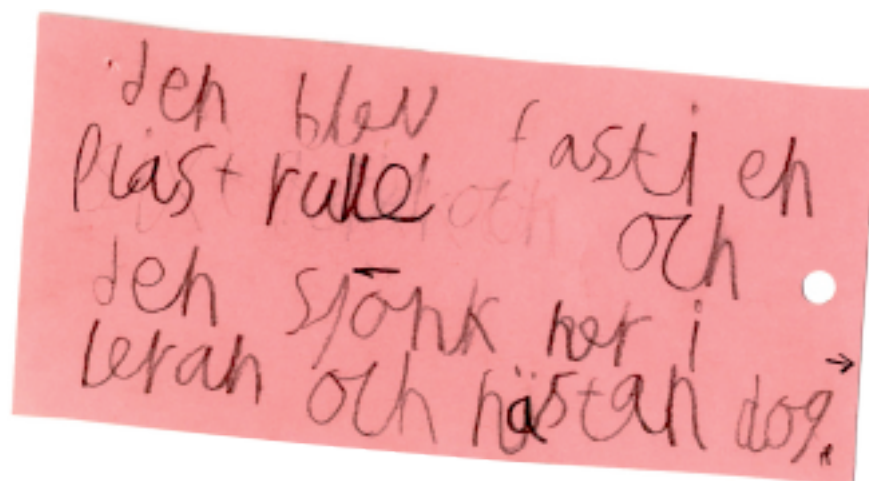 den blev fast i en
plast rulle och
den sjönk ner i
leran och nästan dog.